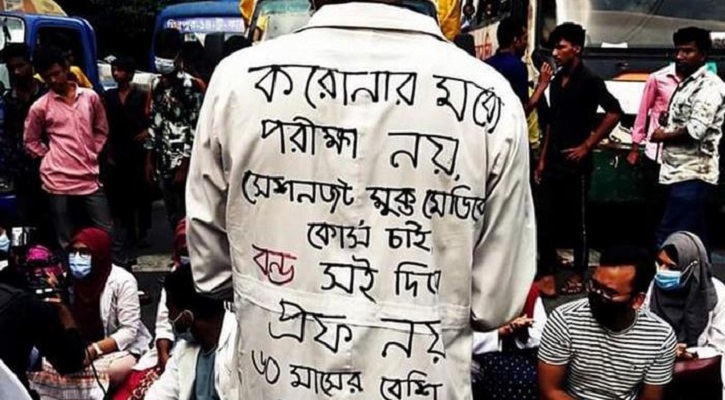 মিরপুর-১৪
করোনার মধ্যে
পরীক্ষা নয়,
সেশনজট মুক্ত মেডিকেল
কোর্স চাই
বন্ড সই দিয়ে
প্রফ নয়
৬০ মাসের বেশি